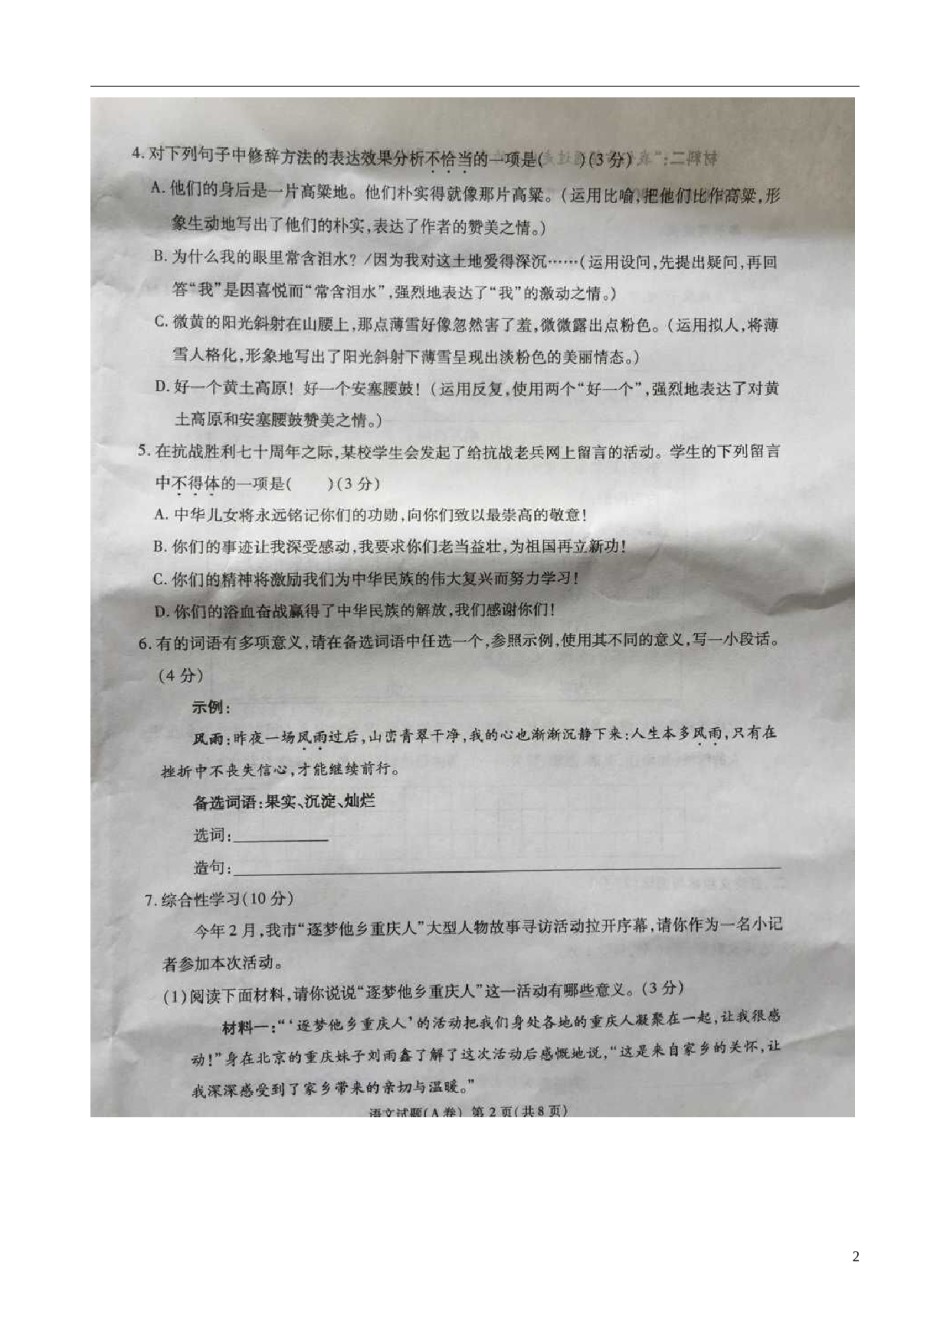 4.对下列句子中修辞方法的表达效果分析不恰当的一项是(　　)(3分)
A.他们的身后是一片高粱地。他们朴实得就像那片高粱。(运用比喻,把他们比作高粱,形
象生动地写出了他们的朴实,表达了作者的赞美之情。)
B.为什么我的眼里常含泪水?/因为我对这土地爱得深沉……(运用设问,先提出疑问,再回
答“我”是因喜悦而“常含泪水”,强烈地表达了“我”的激动之情。)
C.微黄的阳光斜射在山腰上,那点薄雪好像忽然害了羞,微微露出点粉色。(运用拟人,将薄
雪人格化,形象地写出了阳光斜射下薄雪呈现出淡粉色的美丽情态。)
D.好一个黄土高原!好一个安塞腰鼓!(运用反复,使用两个“好一个”,强烈地表达了对黄
土高原和安塞腰鼓赞美之情。)
5.在抗战胜利七十周年之际,某校学生会发起了给抗战老兵网上留言的活动。学生的下列留言
中不得体的一项是(　　)(3分)
A.中华儿女将永远铭记你们的功勋,向你们致以最崇高的敬意!
B.你们的事迹让我深受感动,我要求你们老当益壮,为祖国再立新功!
C.你们的精神将激励我们为中华民族的伟大复兴而努力学习!
D.你们的浴血奋战赢得了中华民族的解放,我们感谢你们!
6.有的词语有多项意义,请在备选词语中任选一个,参照示例,使用其不同的意义,写一小段话。
(4分)
示例:
风雨:昨夜一场风雨过后,山峦青翠干净,我的心也渐渐沉静下来;人生本多风雨,只有在
挫折中不丧失信心,才能继续前行。
备选词语:果实、沉淀、灿烂
选词:
造句:
7.综合性学习(10分)
今年2月,我市“逐梦他乡重庆人”大型人物故事寻访活动拉开序幕,请你作为一名小记
者参加本次活动。
(1)阅读下面材料,请你说说“逐梦他乡重庆人”这一活动有哪些意义。(3分)
材料一:“‘逐梦他乡重庆人’的活动把我们身处各地的重庆人凝聚在一起,让我很感
动!”身在北京的重庆妹子刘雨鑫了解了这次活动后感慨地说,“这是来自家乡的关怀,让
我深深感受到了家乡带来的亲切与温暖。”
语文试题(A卷) 第2页(共8页)
2